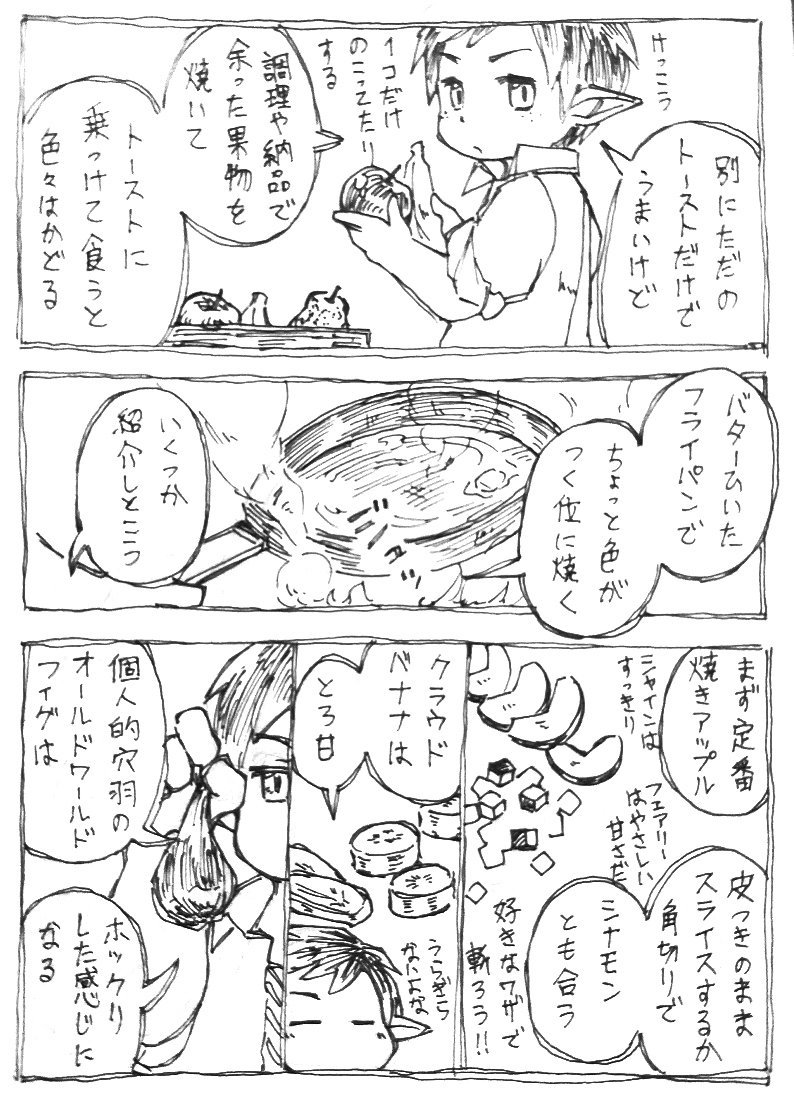 別にただの
トーストだけで
うまいけど
けっこう
1コだけ
のこってたり
する
調理や納品で
余った果物を
焼いて
トーストに
乗っけて食うと
色々はかどる
バターひいた
フライパンで
ちょっと色が
つく位に焼く
ジュー
いくつか
紹介しとこう
まず定番
焼きアップル
シャインは
すっきり
フェアリー
はやさしい
甘さだ
皮つきのまま
スライスするか
角切りで
シナモン
とも合う
好きなワザで
斬ろう!!
クラウド
バナナは
とろ甘
うらぎら
ないよな
個人的穴羽の
オールドワールド
フィグは
ホックリ
した感じに
なる